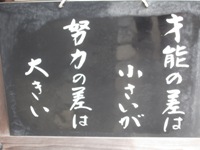 才能の差は
小さいが
努力の差は
大きい